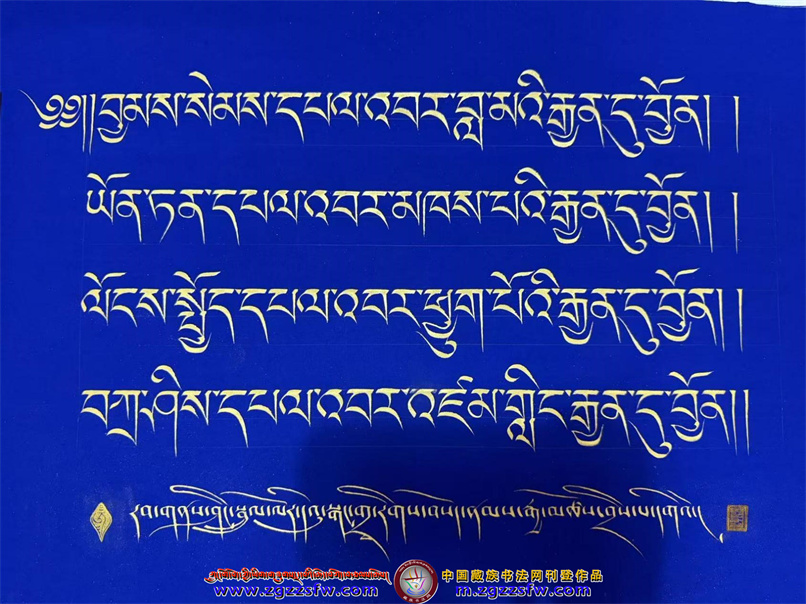 ༄༅།།བྱམས་སེམས་དཔལ་འབར་བླ་མའི་རྒྱན་དུ་བྱོན། །
ཡོན་ཏན་དཔལ་འབར་མཁས་པའི་རྒྱན་དུ་བྱོན། །
ལོངས་སྤྱོད་དཔལ་འབར་ཕྱུག་པོའི་རྒྱན་དུ་བྱོན། །
བཀྲ་ཤིས་དཔལ་འབར་འཛམ་གླིང་རྒྱན་དུ་བྱོན།།
中国藏族书法网刊登作品
www.zgzzsfw.com m.zgzzsfw.com